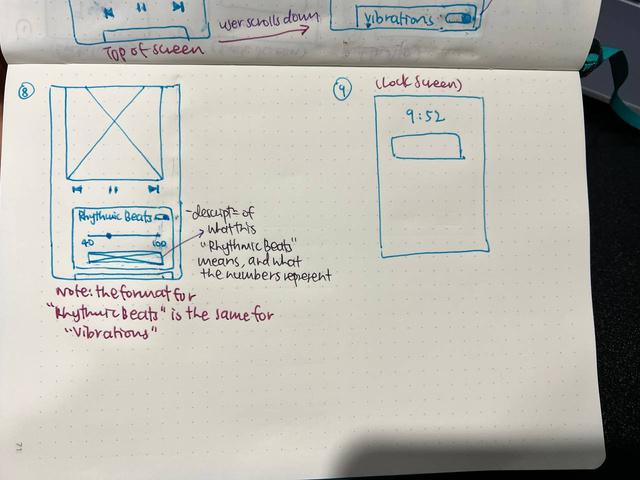 Top of screen
user scrolls down
vibrations
8
Rhythmic Beats
40
100
-descript= of
what this
"Rhythmic Beats"
means, and what
the numbers represent
Note: the format for
"Rhythmic Beats" is the same for
"Vibrations"
9
(Lock Screen)
9:52
71